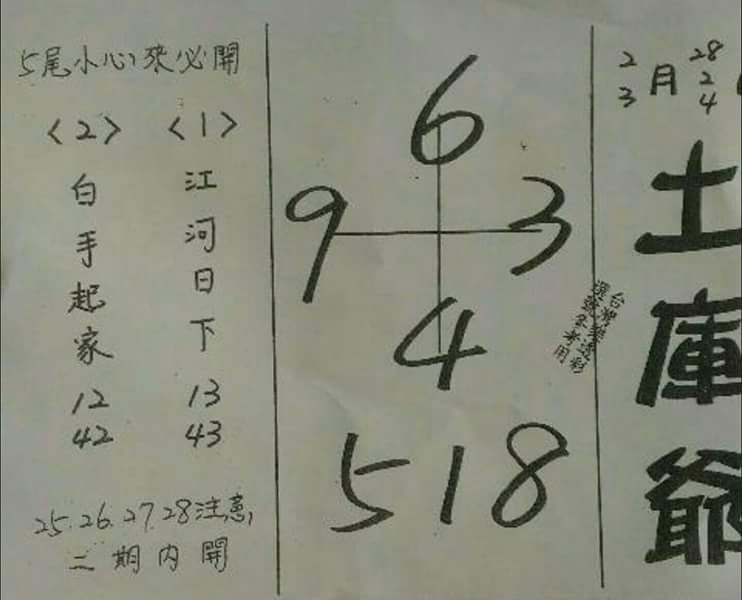 2 3 月 28 2 4
土庫爺
台灣樂透彩
選號參考用
6
9 3
4
518
5尾小心來必開
<1>
江河日下
13
43
<2>
白手起家
12
42
25.26.27.28注意,
二期內開